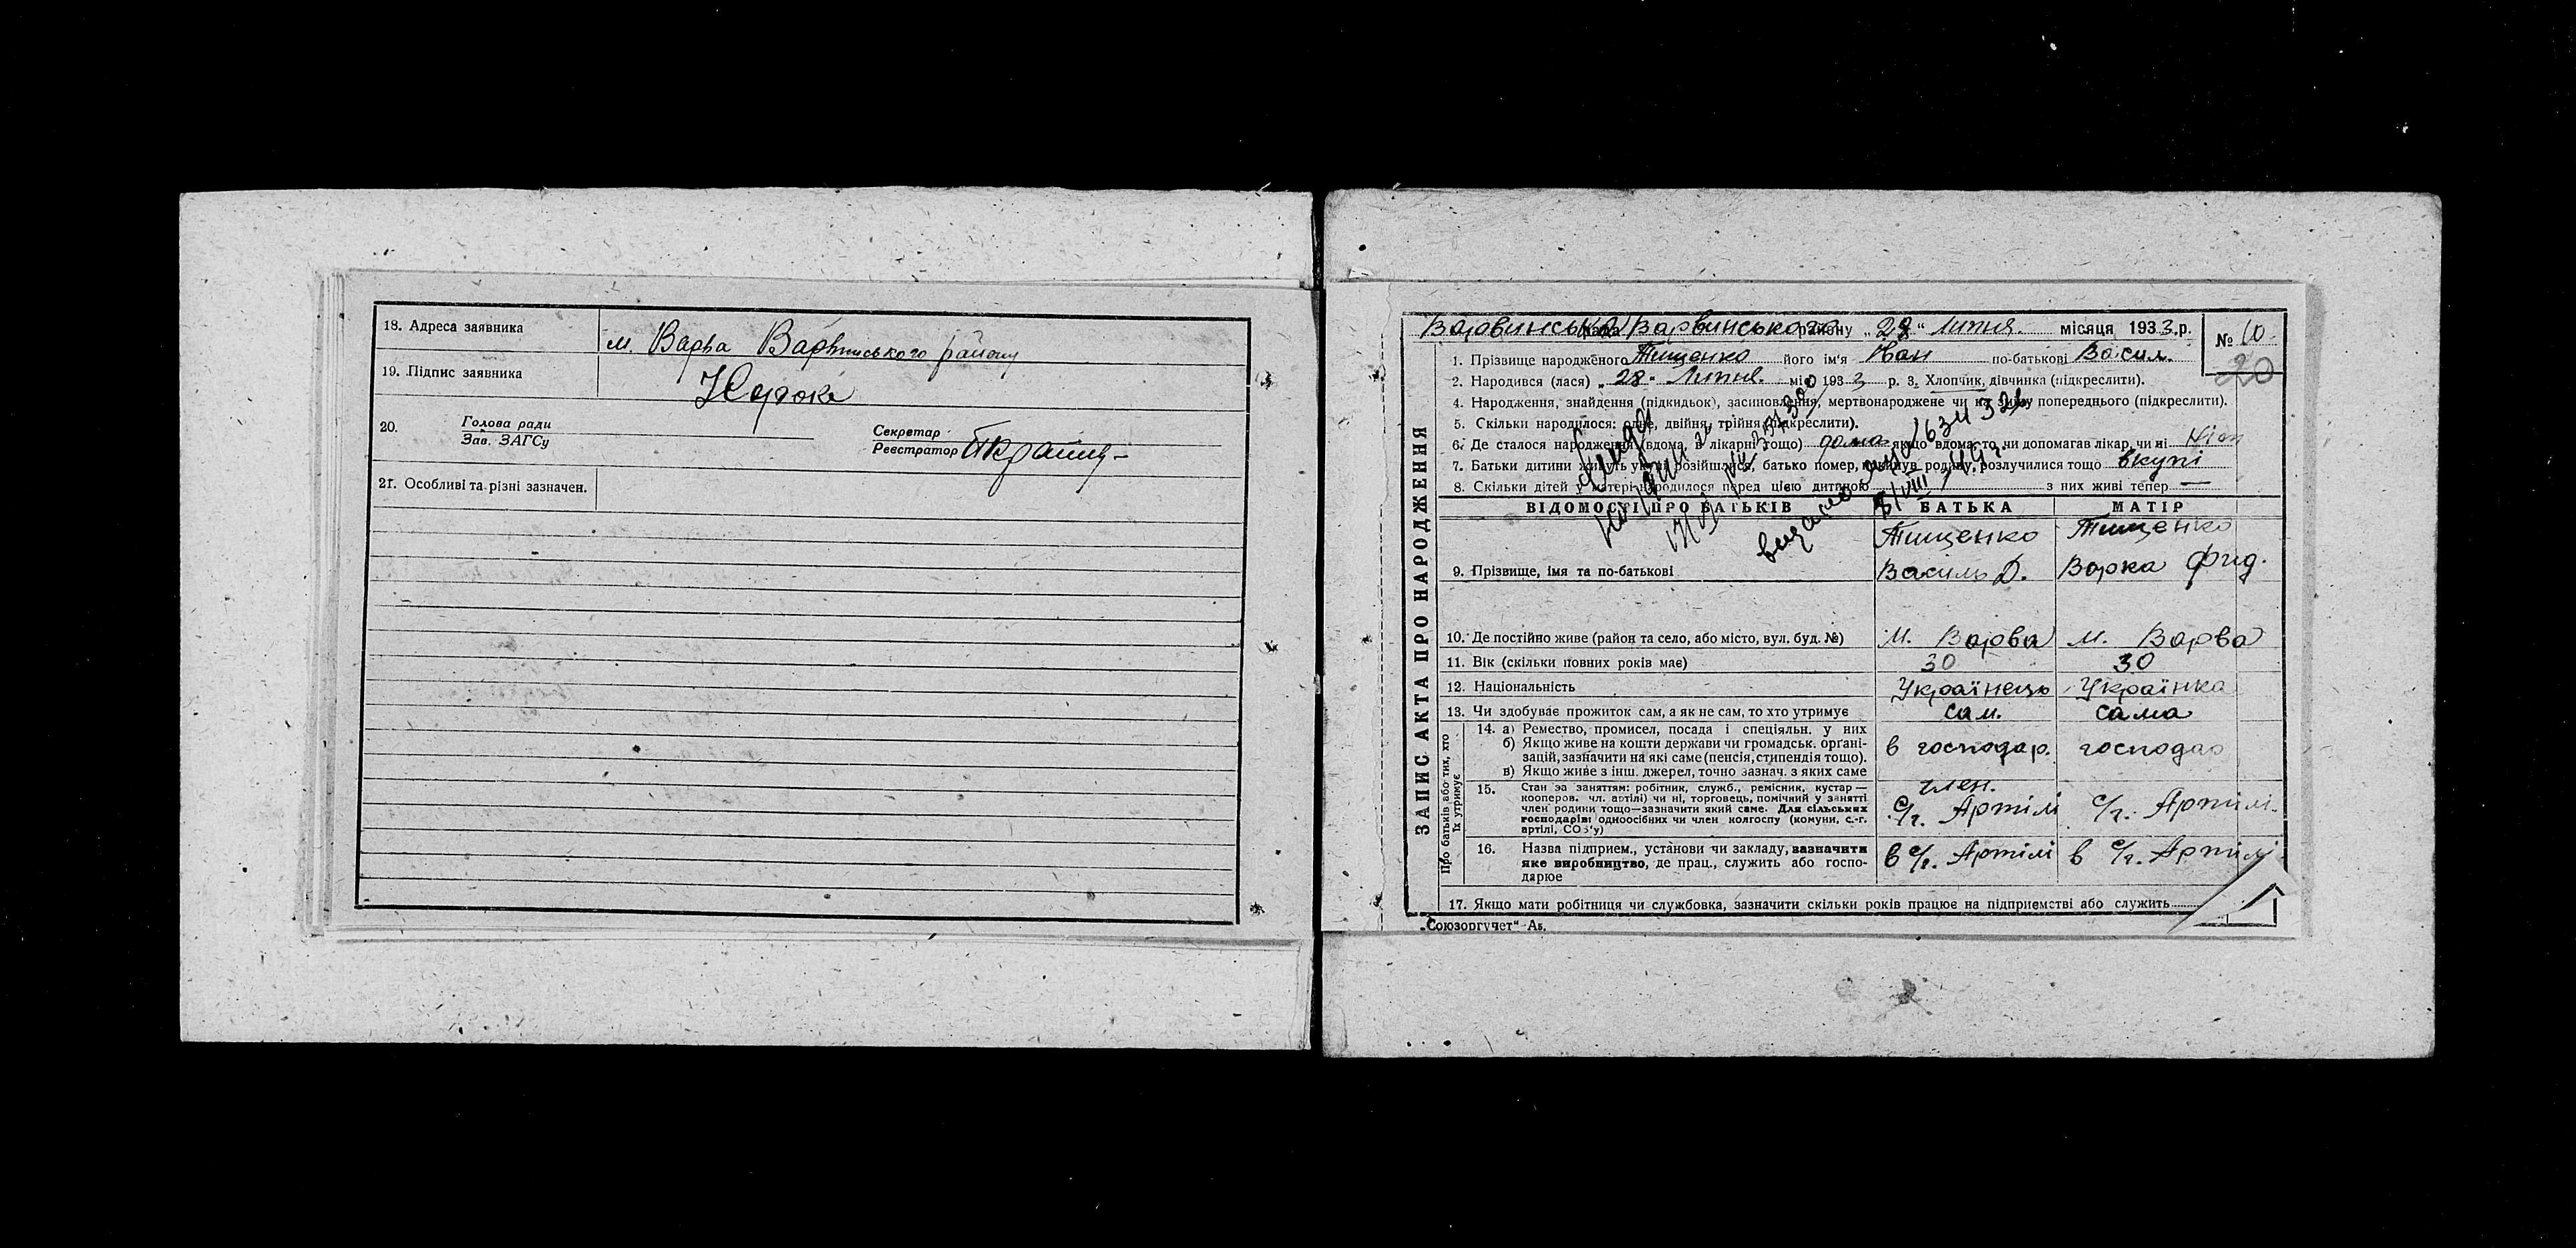 18. Адреса заявника
м. Варва Варвинського району
19. Підпис заявника
20. Голова ради
Зав. ЗАГСу
Секретар
Реєстратор
21. Особливі та різні зазначен.
ЗАПИС АКТА ПРО НАРОДЖЕННЯ
Варвинська рада Варвинського району „28“ Липня місяця 1933 р.
№ 10.
20
1. Прізвище народженого Тищенко його ім'я Іван по-батькові Васил.
2. Народився (лася) „28“ Липня міс. 1933 р. 3. Хлопчик, дівчинка (підкреслити).
4. Народження, знайдення (підкидьок), засиновлення, мертвонароджене чи на зміну попереднього (підкреслити).
5. Скільки народилося: одне, двійня, трійня (підкреслити).
6. Де сталося народження (вдома, в лікарні тощо) дома якщо вдома, то чи допомагав лікар, чи ні Ні
7. Батьки дитини живуть укупі, розійшлися, батько помер, покинув родину, розлучилися тощо вкупі
8. Скільки дітей у матері народилося перед цією дитиною — з них живі тепер —
ВІДОМОСТІ ПРО БАТЬКІВ БАТЬКА МАТІР
9. Прізвище, імя та по-батькові
Тищенко Василь Д.
Тищенко Варка Фид.
10. Де постійно живе (район та село, або місто, вул. буд. №) м. Варва м. Варва
11. Вік (скільки повних років має) 30 30
12. Національність Українець Українка
13. Чи здобуває прожиток сам, а як не сам, то хто утримує сам. сама
Про батьків або тих, хто їх утримує
14. а) Ремество, промисел, посада і спеціяльн. у них
б) Якщо живе на кошти держави чи громадськ. органі-
зацій, зазначити на які саме (пенсія, стипендія тощо).
в) Якщо живе з інш. джерел, точно зазнач. з яких саме
в господар. господар
15. Стан за заняттям: робітник, служб., ремісник, кустар —
кооперов. чл. артілі) чи ні, торговець, помічний у занятті
член родини тощо—зазначити який саме. Для сільських
господарів: одноосібних чи член колгоспу (комуни, с.-г.
артілі, СОЗ'у)
член. с/г. Артілі с/г. Артілі.
16. Назва підприєм., установи чи закладу, зазначити
яке виробництво, де прац., служить або госпо-
дарює
в с/г. Артілі в с/г. Артілі
17. Якщо мати робітниця чи службовка, зазначити скільки років працює на підприємстві або служить
„Союзоргучет“